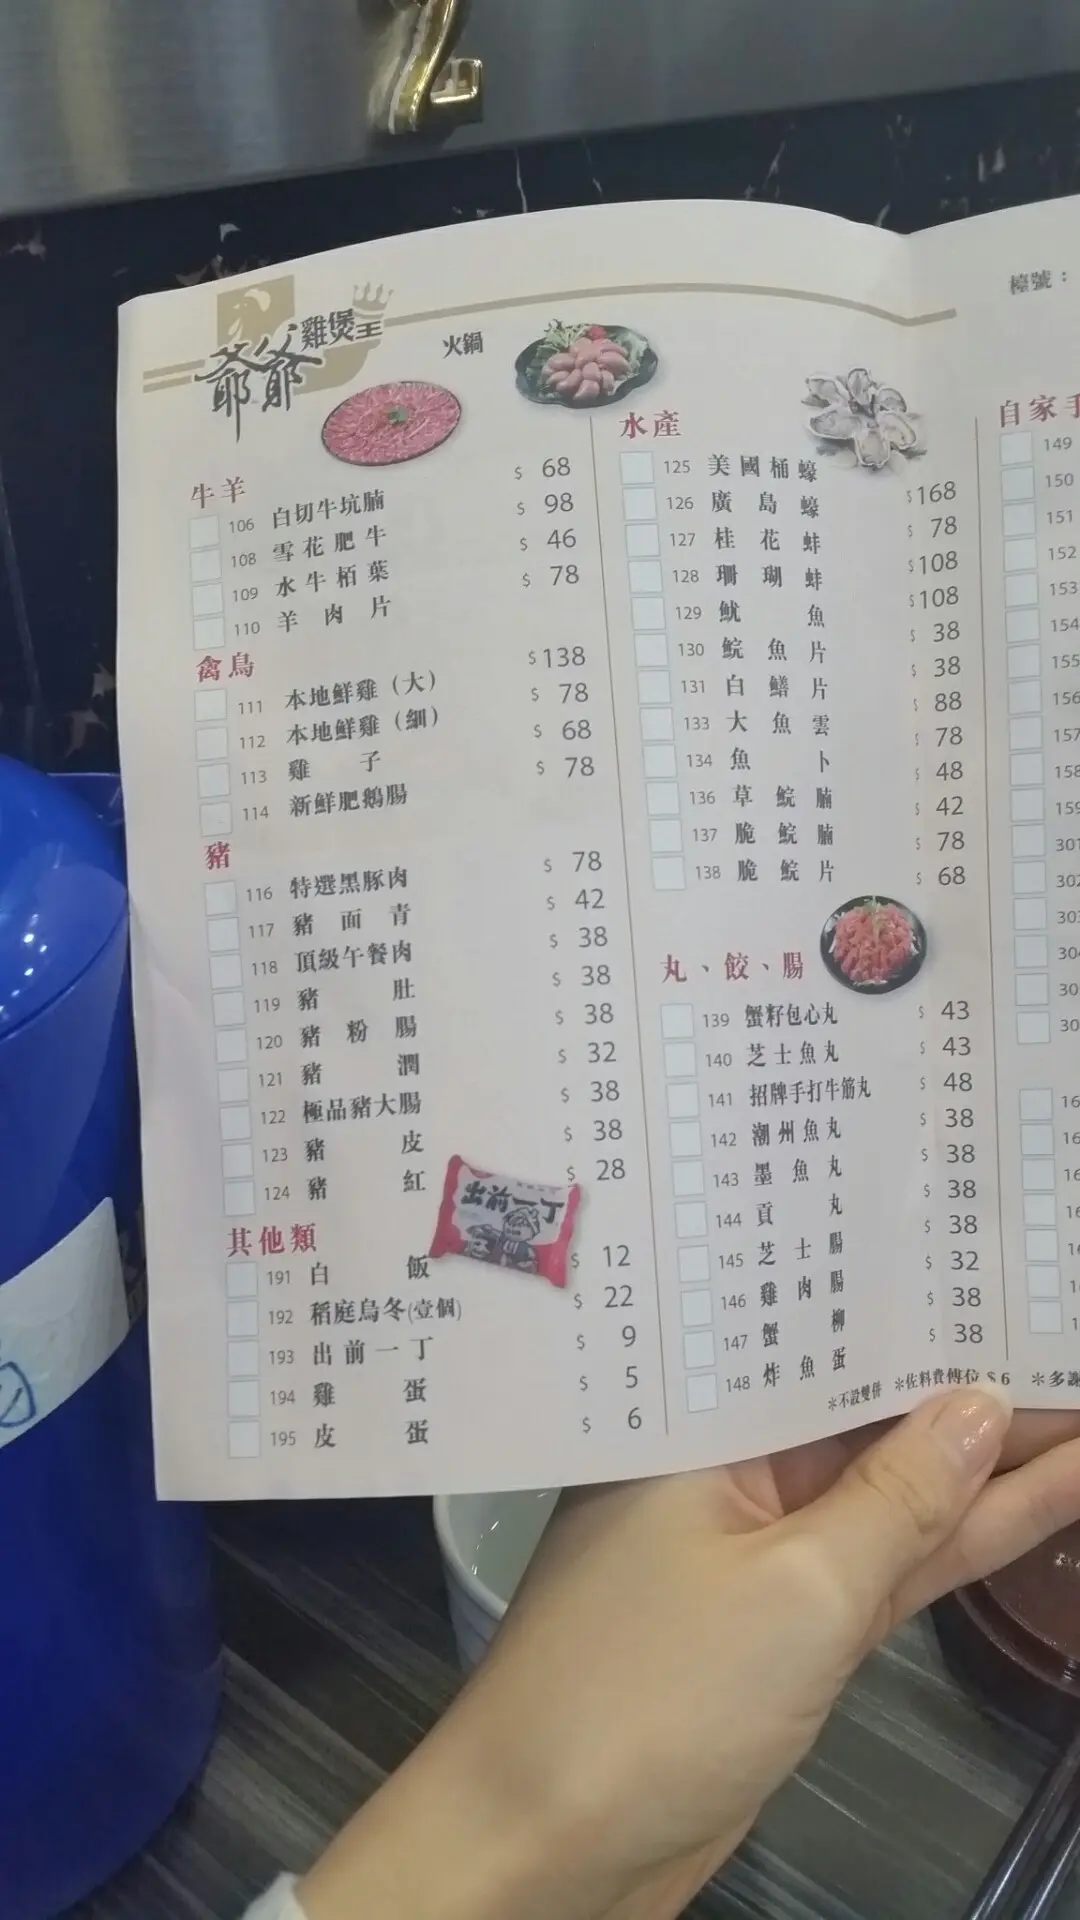 爺爺雞煲王
火鍋
檯號：
牛羊
106 白切牛坑腩 $ 68
108 雪花肥牛 $ 98
109 水牛栢葉 $ 46
110 羊肉片 $ 78
禽鳥
111 本地鮮雞（大） $138
112 本地鮮雞（細） $ 78
113 雞子 $ 68
114 新鮮肥鵝腸 $ 78
豬
116 特選黑豚肉 $ 78
117 豬面青 $ 42
118 頂級午餐肉 $ 38
119 豬肚 $ 38
120 豬粉腸 $ 38
121 豬潤 $ 32
122 極品豬大腸 $ 38
123 豬皮 $ 38
124 豬紅 $ 28
出前一丁
其他類
191 白飯 $ 12
192 稻庭烏冬(壹個) $ 22
193 出前一丁 $ 9
194 雞蛋 $ 5
195 皮蛋 $ 6
水產
125 美國桶蠔 $168
126 廣島蠔 $ 78
127 桂花蚌 $108
128 珊瑚蚌 $108
129 魷魚 $ 38
130 鯇魚片 $ 38
131 白鱔片 $ 88
133 大魚雲 $ 78
134 魚卜 $ 48
136 草鯇腩 $ 42
137 脆鯇腩 $ 78
138 脆鯇片 $ 68
丸、餃、腸
139 蟹籽包心丸 $ 43
140 芝士魚丸 $ 43
141 招牌手打牛筋丸 $ 48
142 潮州魚丸 $ 38
143 墨魚丸 $ 38
144 貢丸 $ 38
145 芝士腸 $ 38
146 雞肉腸 $ 32
147 蟹柳 $ 38
148 炸魚蛋 $ 38
＊不設雙併 ＊佐料費傅位 $ 6 ＊多謝
自家手
149
150
151
152
153
154
155
156
157
158
159
301
302
303